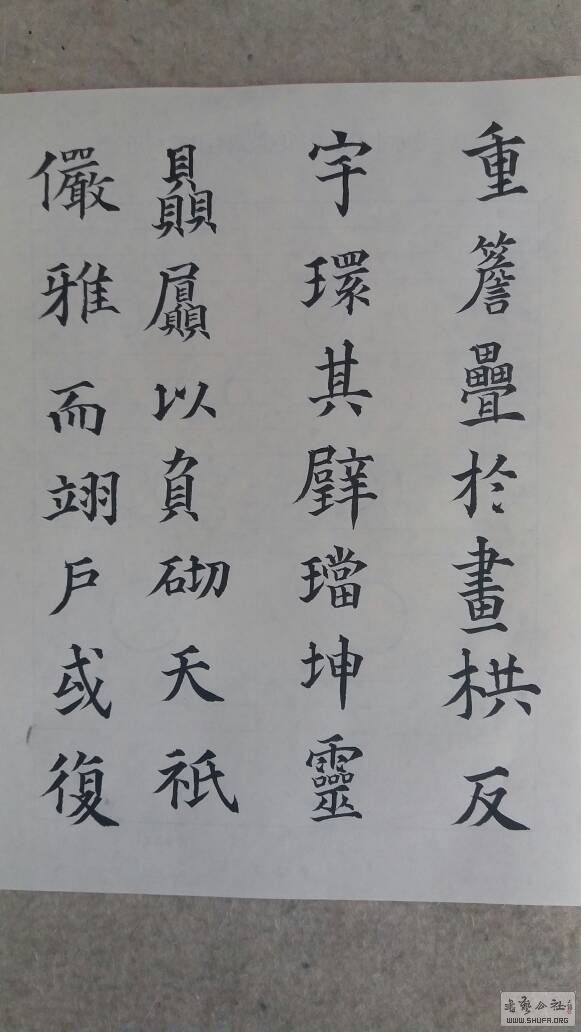 重簷疊於畫栱反
宇環其璧璫坤靈
贔屭以負砌天祇
儼雅而翊戶或復
书艺公社
WWW.SHUFA.ORG